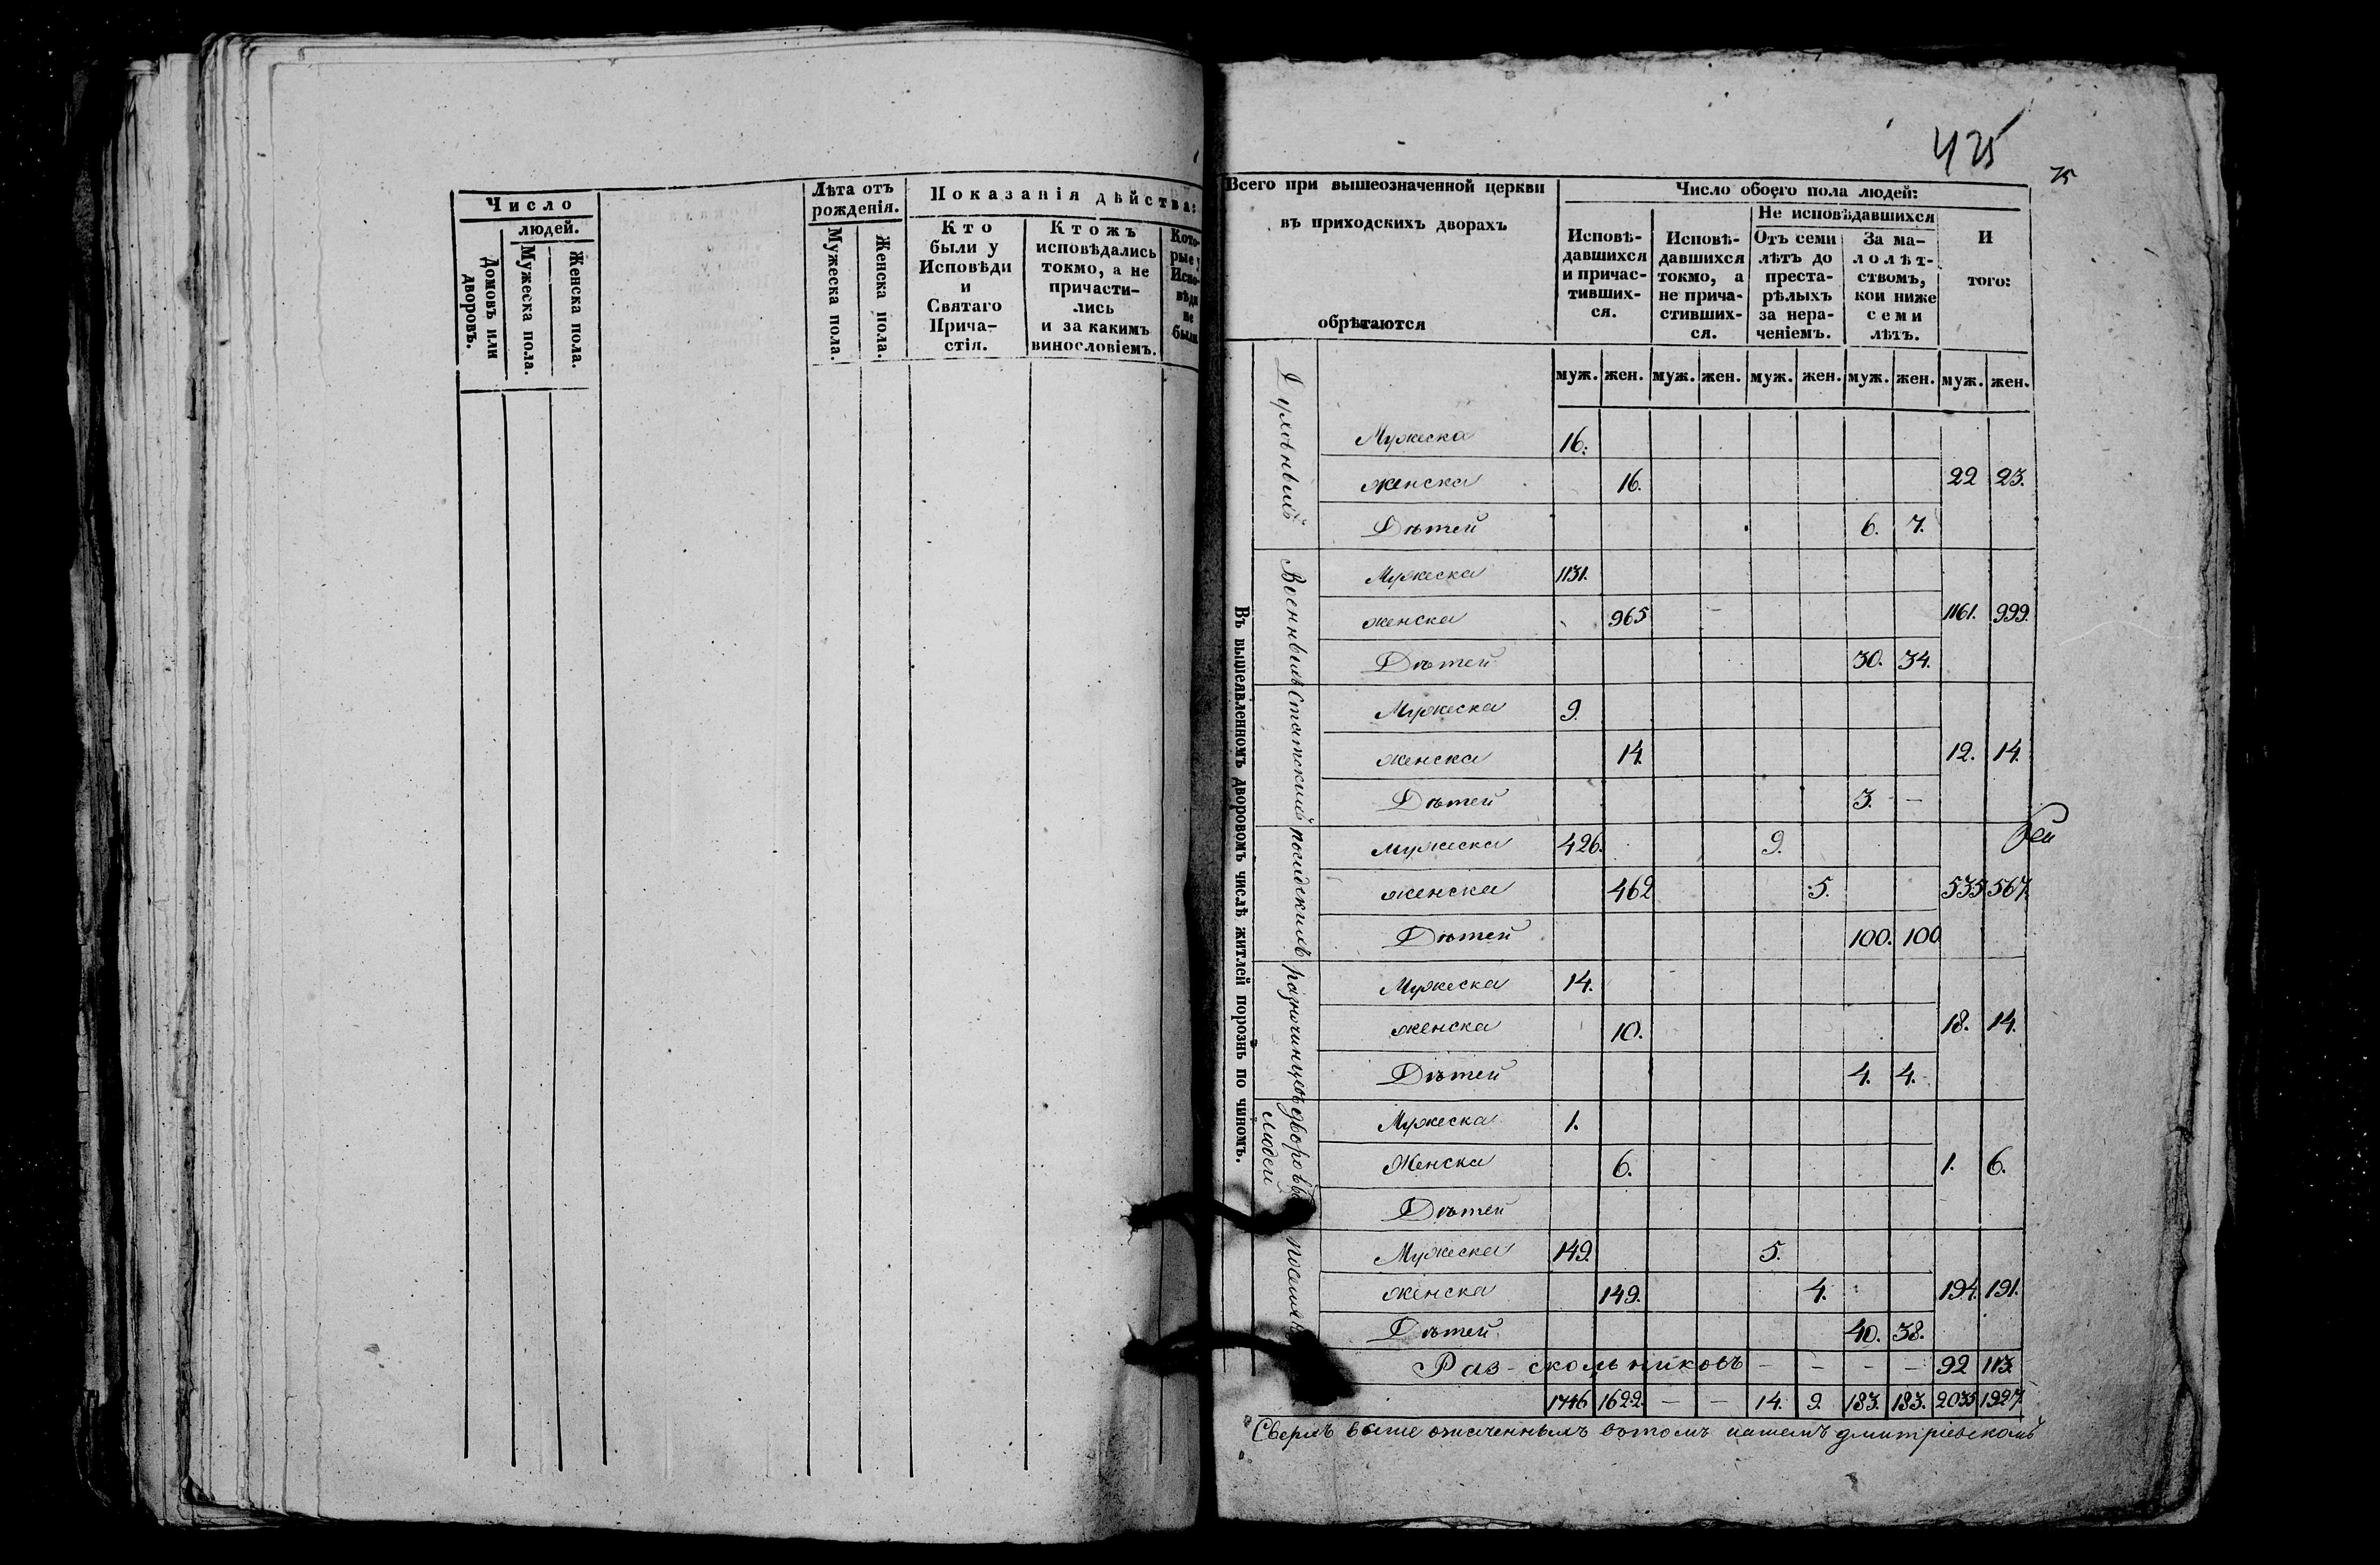 Число
людей.
Домовъ или дворовъ.
Мужеска пола.
Женска пола.
Лѣта отъ
рожденія.
Мужеска пола.
Женска пола.
Показанія дѣйства:
Кто
были у
Исповѣди
и
Святаго
Прича-
стія.
Ктожъ
исповѣдались
токмо, а не
причасти-
лись
и за какимъ
винословіемъ.
Кото-
рые у
Испо-
вѣди
не
были
425
75
Всего при вышеозначенной церкви
въ приходскихъ дворахъ
обрѣтаются
Число обоего пола людей:
Исповѣ-
давшихся
и причас-
тивших-
ся.
Исповѣ-
давшихся
токмо, а
не прича-
стивших-
ся.
Не исповѣдавшихся
Отъ семи
лѣтъ до
преста-
рѣлыхъ
за нера-
ченіемъ.
За ма-
лолѣт-
ствомъ,
кои ниже
семи
лѣтъ.
И
того:
муж. жен. муж. жен. муж. жен. муж. жен. муж. жен.
Въ вышеявленномъ дворовомъ числѣ житлей порознь по чиномъ.
Духовныхъ
Мужеска 16.
Женска 16. 22 23.
Дѣтей 6. 7.
Военныхъ
Мужеска 1131.
женска 965 1161. 999.
Дѣтей 30. 34.
Статскихъ
Мужеска 9.
женска 14. 12. 14.
Дѣтей 3. —
посадскихъ
Мужеска 426. 9.
женска 462 5. 535 567.
Дѣтей 100. 100
разночинцевъ
Мужеска 14.
женска 10. 18. 14.
Дѣтей 4. 4.
дворовы
людей
Мужеска 1.
Женска 6. 1. 6.
Дѣтей
поселянъ
Мужеска 149. 5.
женска 149. 4. 194. 191.
Дѣтей 40. 38.
Раз-скольниковъ — — — — 92 113.
1746 1622. — — 14. 9 183. 183. 2035 1927.
Сверхъ выше означенныхъ вътомъ нашемъ дмитріевскомъ